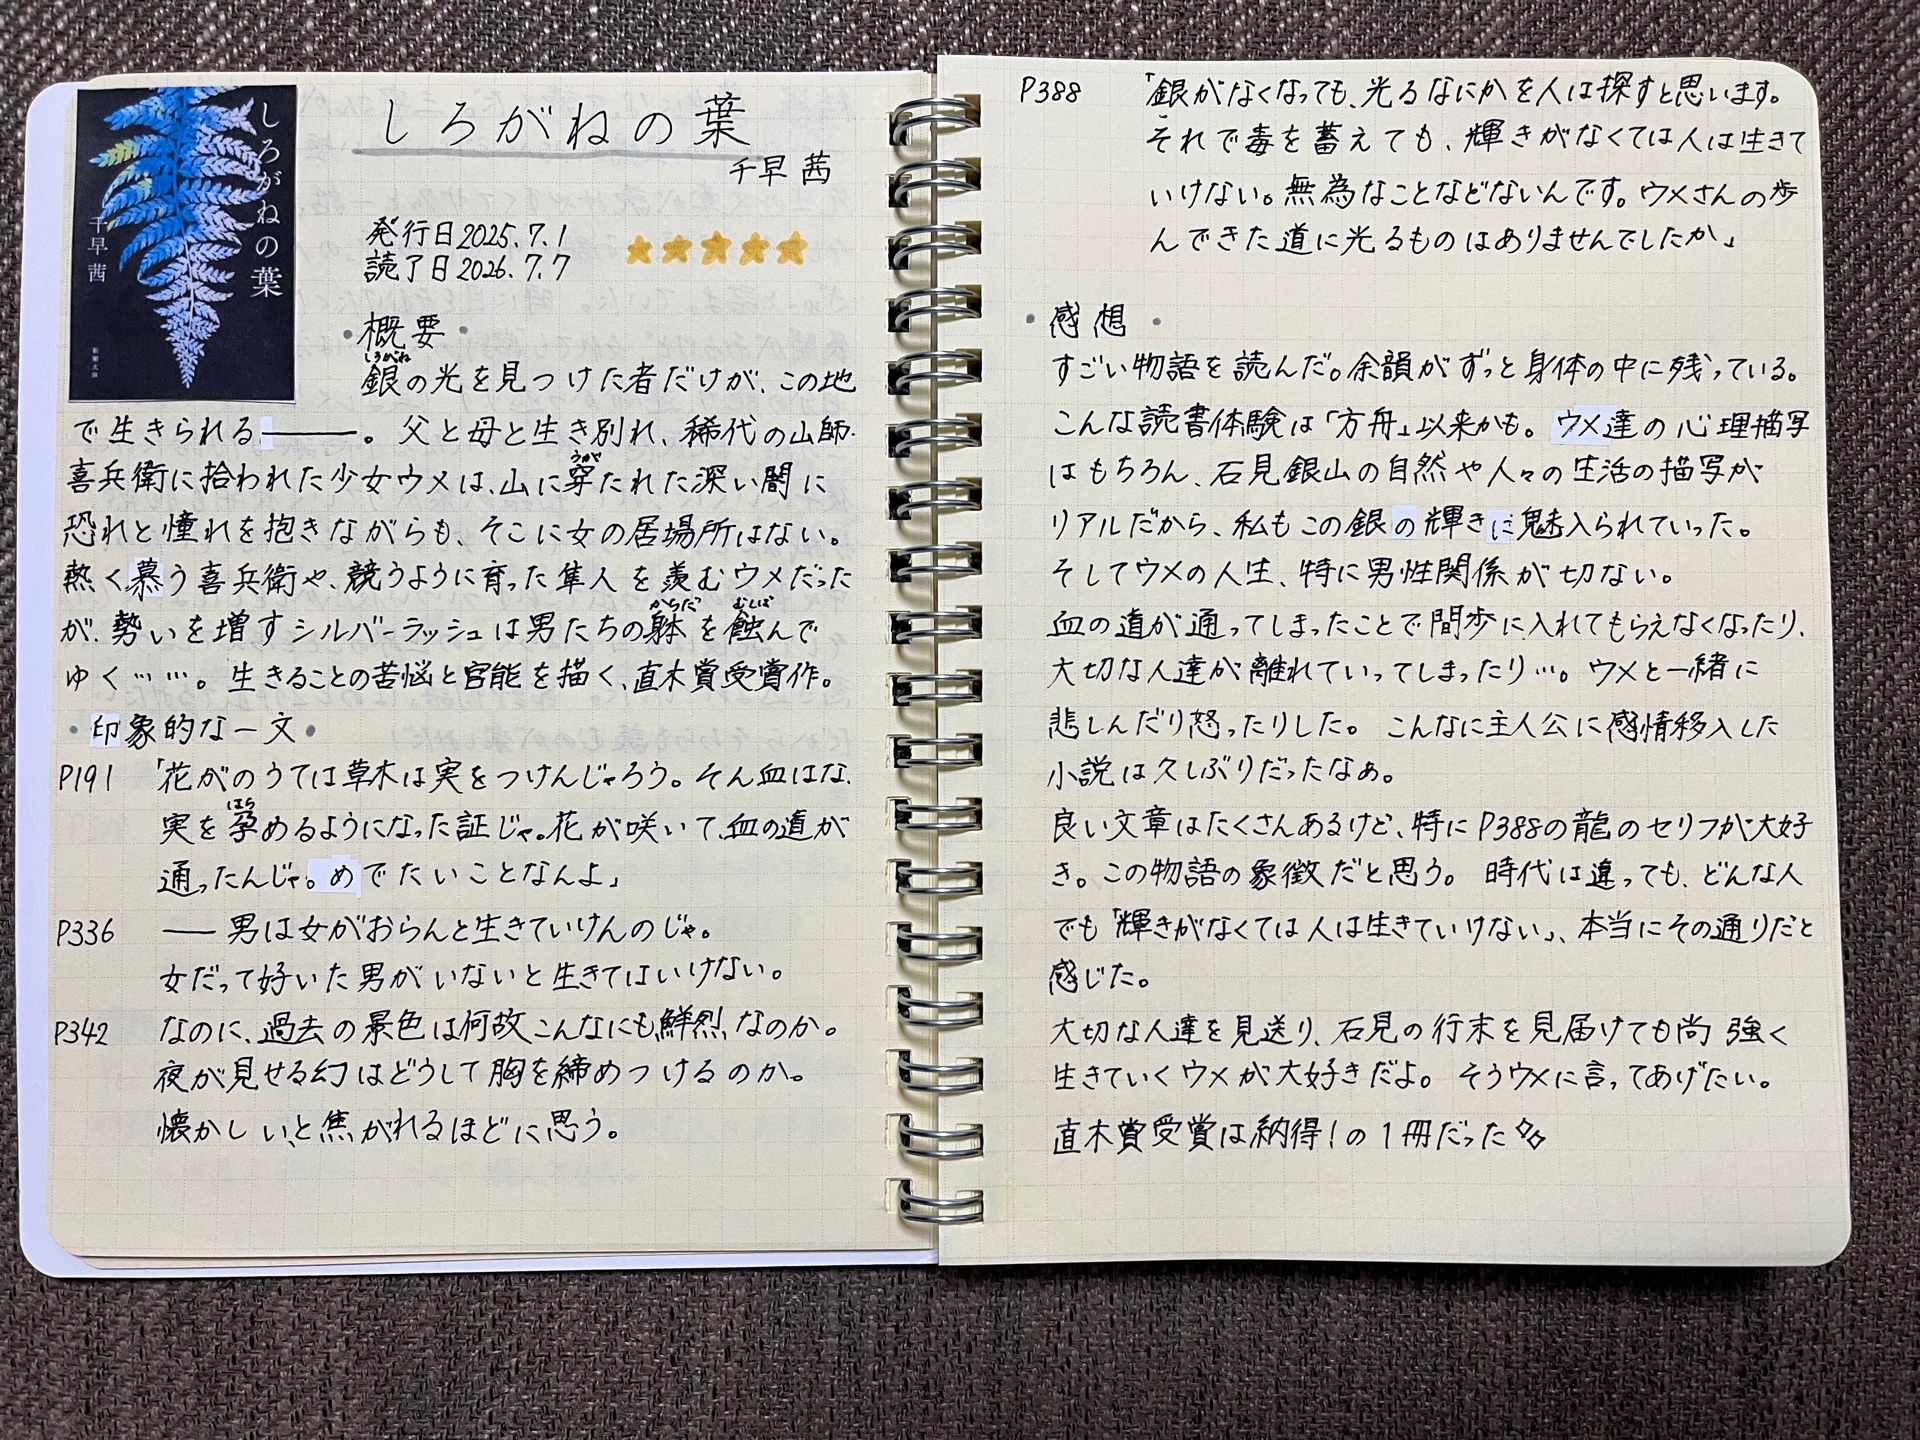 しろがねの葉
千早 茜
新潮文庫
しろがねの葉
千早 茜
発行日 2025.7.1
読了日 2026.7.7
・概要・
しろがね
銀の光を見つけた者だけが、この地
で生きられる――。父と母と生き別れ、稀代の山師・
喜兵衛に拾われた少女ウメは、山に穿たれた深い闇に
うが
恐れと憧れを抱きながらも、そこに女の居場所はない。
熱く慕う喜兵衛や、競うように育った隼人を羨むウメだった
が、勢いを増すシルバーラッシュは男たちの躰を蝕んで
からだ むしば
ゆく……。生きることの苦悩と官能を描く、直木賞受賞作。
・印象的な一文・
P191 「花がのうては草木は実をつけんじゃろう。そん血はな、
実を孕めるようになった証じゃ。花が咲いて、血の道が
はら
通ったんじゃ。めでたいことなんよ」
P336 ――男は女がおらんと生きていけんのじゃ。
女だって好いた男がいないと生きてはいけない。
P342 なのに、過去の景色は何故こんなにも鮮烈なのか。
夜が見せる幻はどうして胸を締めつけるのか。
懐かしい、と焦がれるほどに思う。
P388 「銀がなくなっても、光るなにかを人は探すと思います。
それで毒を蓄えても、輝きがなくては人は生きて
いけない。無為なことなどないんです。ウメさんの歩
んできた道に光るものはありませんでしたか」
・感想・
すごい物語を読んだ。余韻がずっと身体の中に残っている。
こんな読書体験は「方舟」以来かも。ウメ達の心理描写
はもちろん、石見銀山の自然や人々の生活の描写が
リアルだから、私もこの銀の輝きに魅入られていった。
そしてウメの人生、特に男性関係が切ない。
血の道が通ってしまったことで間歩に入れてもらえなくなったり、
大切な人達が離れていってしまったり…。ウメと一緒に
悲しんだり怒ったりした。こんなに主人公に感情移入した
小説は久しぶりだったなぁ。
良い文章はたくさんあるけど、特にP388の龍のセリフが大好
き。この物語の象徴だと思う。時代は違っても、どんな人
でも「輝きがなくては人は生きていけない」、本当にその通りだと
感じた。
大切な人達を見送り、石見の行末を見届けても尚強く
生きていくウメが大好きだよ。そうウメに言ってあげたい。
直木賞受賞は納得!の1冊だった